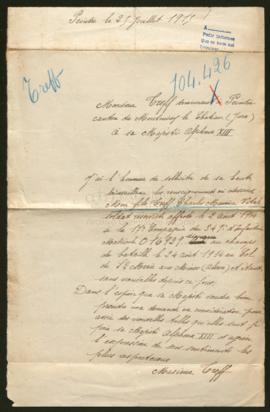 Peintre le 29 Juillet 1915
Treff
104.426
Monsieur Treff
canton de Montmirey le Château (Jura)
à sa Majesté Alphonse XIII
J'ai l'honneur de solliciter de sa haute
bienveillance les renseignements
Mon fils Treff Charles Maurice
soldat affecté le 2 août 1914
à la 17e Compagnie du 349e d'infanterie
Matricule 016929 au champs
de bataille le 24 août 1914 au Col
de Ste Marie aux Mines (Alsace)
sans nouvelles depuis ce jour.
Dans l'espoir que sa Majesté voudra bien
prendre ma demande en considération pour
avoir des nouvelles telles qu'elles soient je
prie sa Majesté Alphonse XIII d'agréer
l'expression de mes sentiments les
plus respectueux
Treff